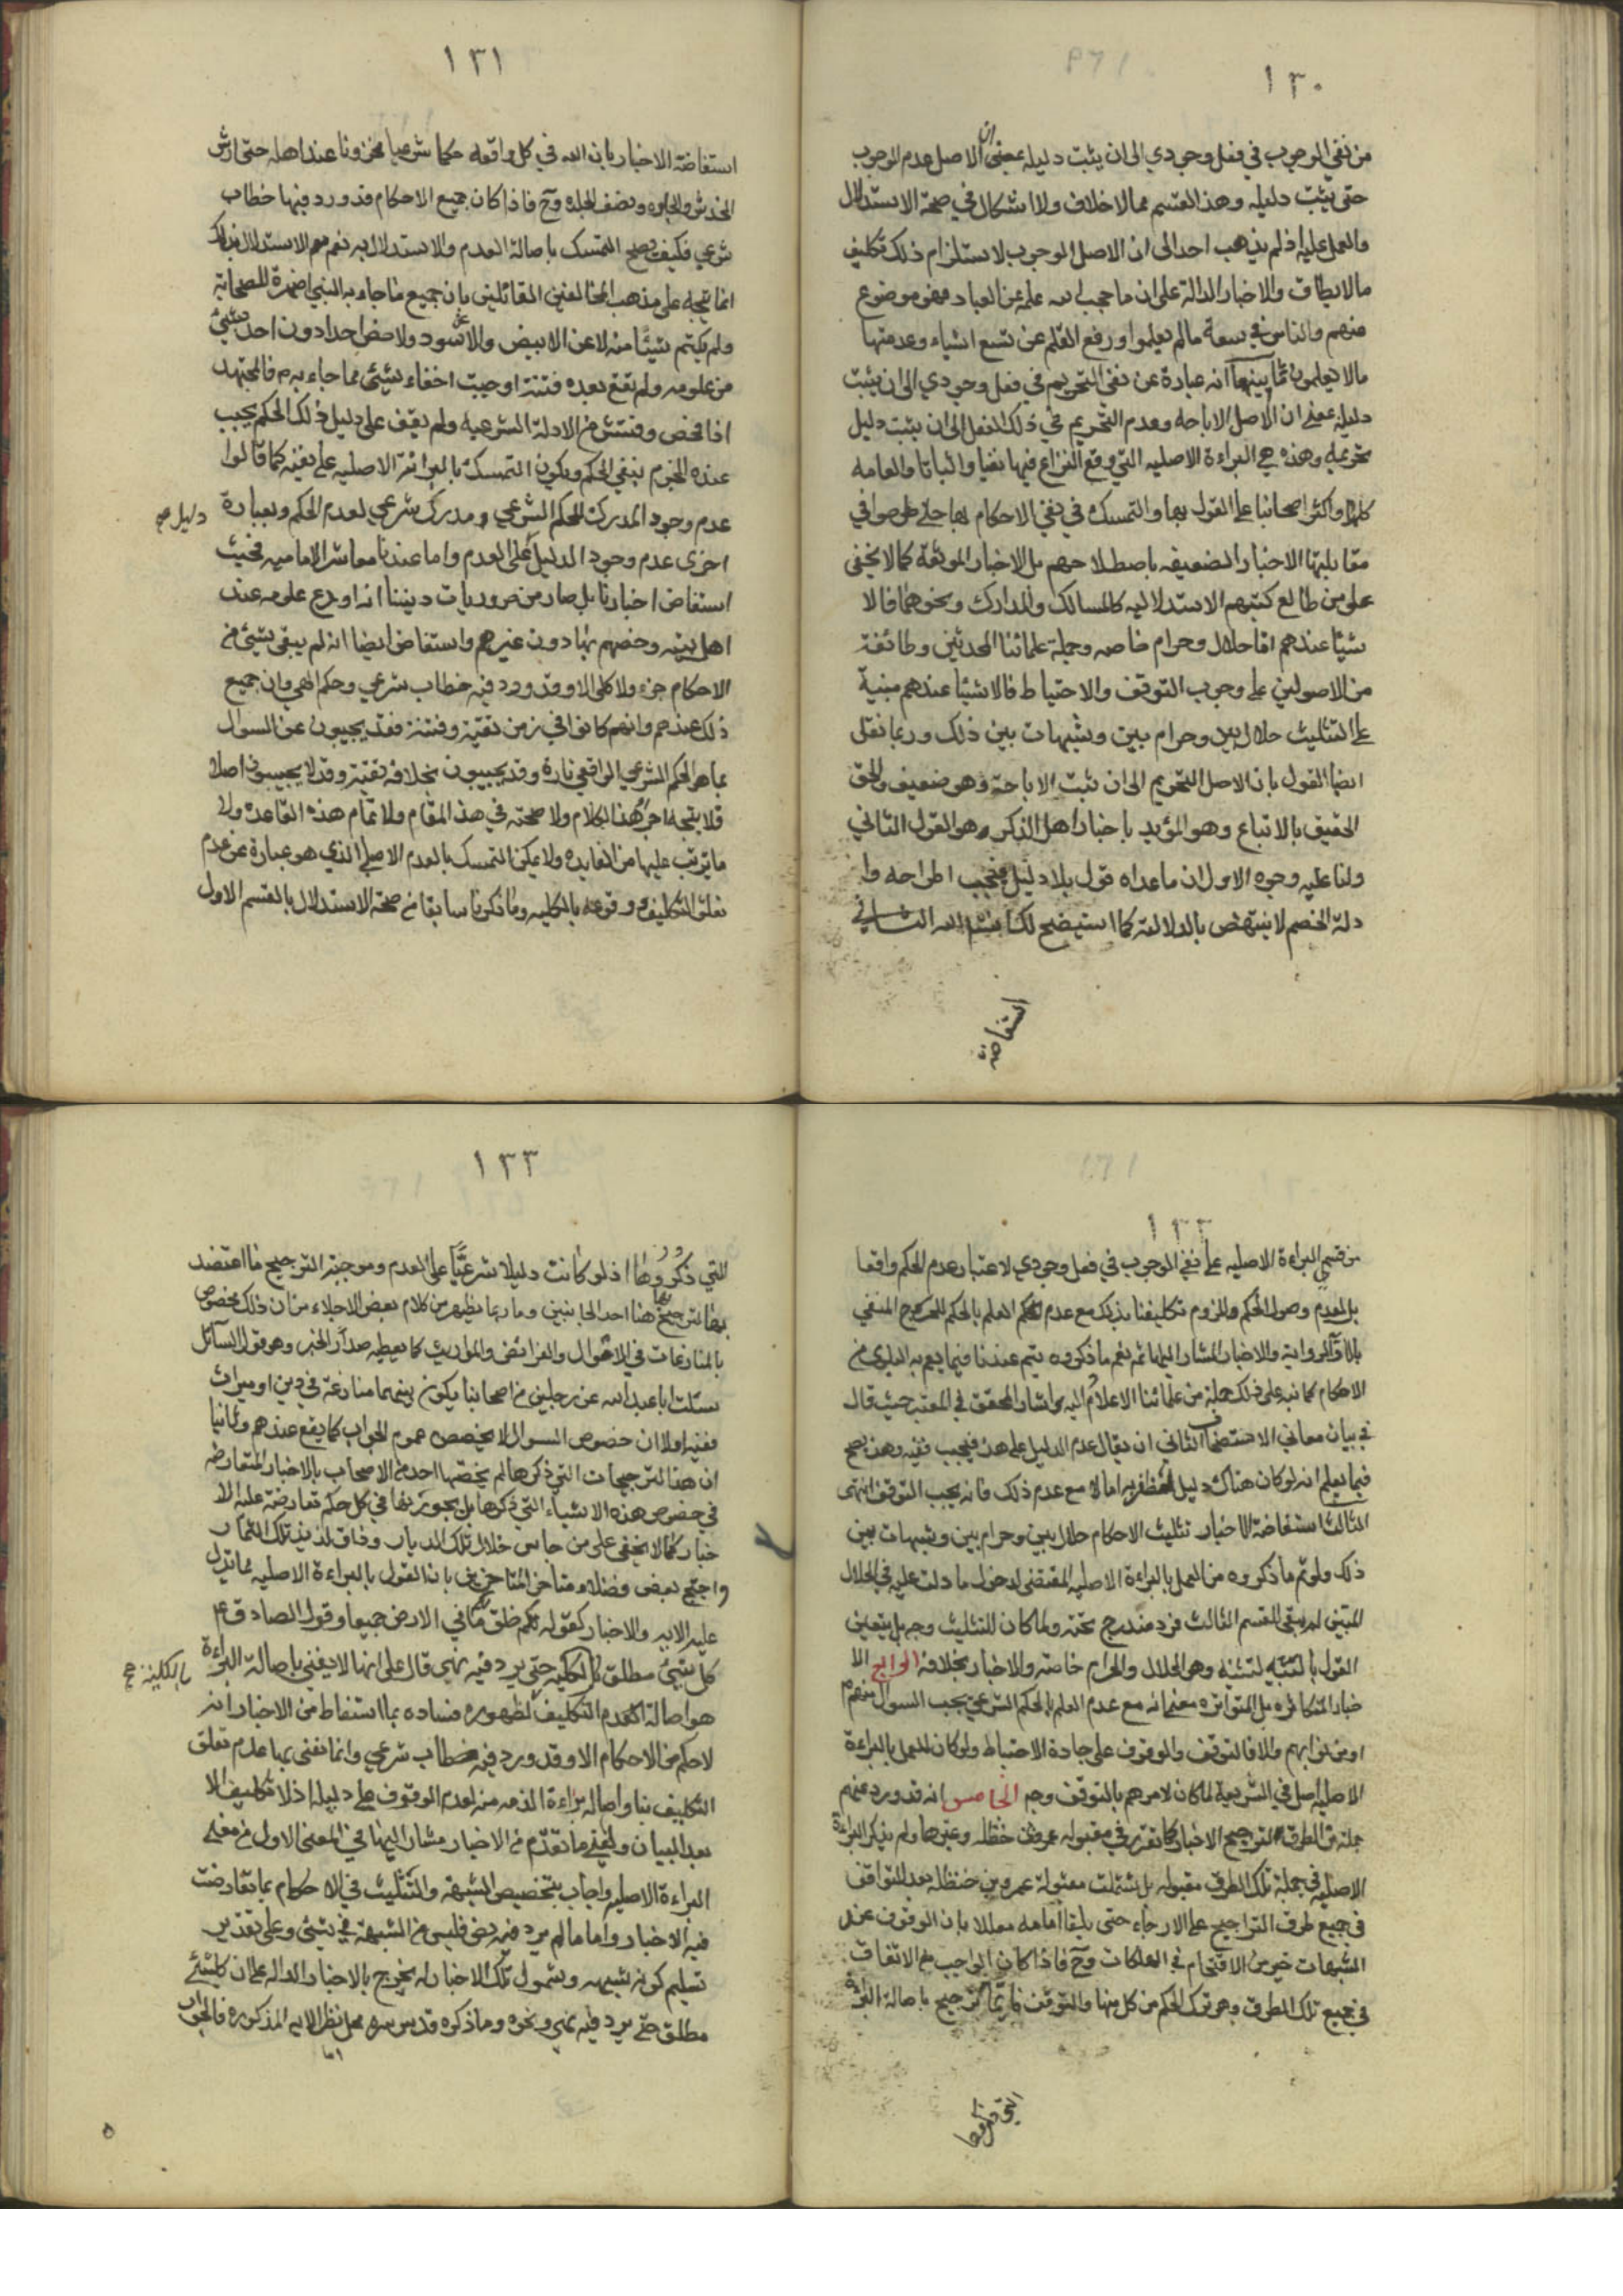 ١٣٠
من نفي الوجوب في فعل وجودي الى ان يثبت دليله بمعنى ان الاصل عدم الوجوب
حتى يثبت دليله وهذا القسيم مما لا خلاف ولا اشكال في صحة الاستدلال
والعمل عليه اذ لم يذهب احد الى ان الاصل الوجوب لاستلزام ذلك تكليف
ما لا يطاق والاخبار الدالة على ان ما حجب الله علمه عن العباد فهو موضوع
عنهم والناس في سعة ما لم يعلموا ورفع القلم عن تسع اشياء وعد منها
ما لا يعلمون ثانيهما انه عبارة عن نفي التحريم في فعل وجودي الى ان يثبت
دليله بمعنى ان الاصل الاباحه وعدم التحريم في ذلك الفعل الى ان يثبت دليل
تحريمه وهذه هي البراءة الاصليه التي وقع النزاع فيها نفيا واثباتا والعامه
كلهم واكثر اصحابنا على القول بها والتمسك في نفي الاحكام بها حتى طرحوا في
مقابلتها الاخبار الضعيفه باصطلاحهم بل الاخبار الموثقة كما لا يخفى
على من طالع كتبهم الاستدلاليه كالمسالك والمدارك ونحوهما فالا
شيئا عندهم اما حلال وحرام خاصه وجملة علمائنا المحدثين وطائفة
من الاصولين على وجوب التوقف والاحتياط فالاشيئا عندهم مبنية
على التثليث حلال بين وحرام بين وشبهات بين ذلك وربما نقل
ايضا القول بان الاصل التحريم الى ان تثبت الاباحة وهو ضعيف والحق
الحقيق بالاتباع وهو المؤيد باخبار اهل الذكر وهو القول الثاني
ولنا عليه وجوه الاول ان ما عداه قول بلا دليل فيجب اطراحه وا
دلة الخصم لا ينتهض بالدلالة كما استيضح لك انشاء الله الثاني
استفاضة
١٣١
استفاضة الاخبار بان الله في كل واقعه حكما شرعيا مخزونا عند اهله حتى ارش
الخدش والجلده ونصف الجلده وح فاذا كان جميع الاحكام قد ورد فيها خطاب
شرعي فكيف يصح التمسك باصالة العدم والاستدلال به نعم الاستدلال بذلك
انما يتجه على مذهب المخالفين القائلين بان جميع ما جاء به النبي اظهره للصحابة
ولم يكتم شيئا منه لا عن الابيض والاسود ولا خص احدا دون احد بشيئ
من علومه ولم تقع بعده فتنة اوجبت اخفاء شيئ مما جاء به م فالمجتهد
اذا فحص وفتش في الادلة الشرعيه ولم يقف على دليل ذلك الحكم يجب
عنده الجزم بنفي الحكم ويكون التمسك بالبرائة الاصليه على نفيه كما قالوا
عدم وجود المدرك للحكم الشرعي ومدرك شرعي لعدم الحكم وبعبارة
دليل
اخرى عدم وجود الدليل على العدم واما عندنا معاشر الاماميه فحيث
استفاض اخبارنا بل صار من ضروريات ديننا انه اودع علومه عند
اهل بيته وخصهم بها دون غيرهم واستفاض ايضا انه لم يبق شيئ في
الاحكام جزء ولا كلي الا وقد ورد فيه خطاب شرعي وحكم الهي وان جميع
ذلك عندهم وانهم كانوا في زمن تقية وفتنة فقد يجيبون عن السوال
بما هو الحكم الشرعي الواقعي تارة وقد يجيبون بخلافه تقية وقد لا يجيبون اصلا
فلا يتجه اجراء هذا الكلام ولا صحته في هذ المقام ولا تمام هذه القاعدة ولا
ما يترتب عليها من الفايده ولا يمكن التمسك بالعدم الاصلي الذي هو عبارة عن عدم
تعلق التكليف ووقوعه بالكليه وما ذكرنا سابقا من صحة الاستدلال بالقسم الاول
١٣٢
من قسمي البراءة الاصليه على نفي الوجوب في فعل وجودي لا عتبار عدم الحكم واقعا
بل لعدم وصول الحكم ولزوم تكليفنا بذلك مع عدم العلم بالحكم المنفي
والرواية والاخبار المشار اليها ثم نعم ما ذكروه يتم عندنا فيما يعم به البلوى من
الاحكام كما نبه على ذلك جملة من علمائنا الاعلام واليه اشار المحقق في المعتبر حيث قال
في بيان معاني الاستصحاب الثاني ان يقال عدم الدليل على هذا فيجب نفيه وهذا يصح
فيما يعلم انه لو كان هناك دليل لظفر به اما لا مع عدم ذلك فانه يجب التوقف انتهى
الثالث استفاضة الاخبار تثليث الاحكام حلال بين وحرام بين وشبهات بين
ذلك ولو تم ما ذكروه من العمل بالبراءة الاصليه المقتضى لدخول ما دلت عليه في الحلال
البين لم يبق للقسم الثالث فرد مندرج تحته ولما كان للتثليث وجه بل يتعين
القول بالتثنيه لتثنيه وهو الحلال والحرام خاصه والاخبار بخلافه الرابع الا
خبار المتكاثره بل المتواتره معنى انه مع عدم العلم بالحكم الشرعي يجب السوال منهم م
او من نوابهم والا فالتوقف والوقوف على جادة الاحتياط ولو كان للعمل بالبراءة
الاصليه اصل في الشريعة لما كان لامرهم بالتوقف وجه الخامس انه قد ورد عنهم
جملة من الطرق لترجيح الاخبار كما تقرر في مقبوله عمر بن حنظله وغيرها ولم يذكر البراءة
الاصليه في جملة تلك الطرق مقبوله بل شتملت مقبولة عمر بن حنظله بعد التوافق
في جميع طرق التراجيح على الارجاء حتى يلقا امامه معللا بان الوقوف عند
الشبهات خير من الاقتحام في الهلكات وح فاذا كان الواجب مع الاتفاق
في جميع تلك الطرق وهو ترك الحكم من كل منها والتوقف فما ترجيح باصالة البراءة
التي ذكروها
١٣٣
التي ذكروها اذ لو كانت دليلا شرعيا على العدم وموجبة الترجيح ما اعتضد
بها ترجح هنا احد الجانبين وما ربما يظهر من كلام بعض الاجلاء من ان ذلك مخصوص
بالمنازعات في الاموال والفرائض والمواريث كما يعطيه صدر الخبر وهو قول السائل
سئلت ابا عبد الله عن رجلين من اصحابنا يكون بينهما منازعة في دين او ميراث
ففيه اولا ان خصوص السوال لا يخصص عموم الجواب كما يقع عندهم وثانيا
ان هذا الترجيحات التي ذكرها لم يخصها احد من الاصحاب بالاخبار المتعارضه
في خصوص هذه الاشياء التي ذكرها بل يجوزنها في كل حكم تعارضت عليه الا
خبار كما لا يخفى على من جاس خلال تلك الديار وذاق لذيذ تلك الثمار
واحتج بعض فضلاء متاخر المتاخرين بان القول بالبراءة الاصليه مما يدل
عليه الايه والاخبار كقوله خلق لكم ما في الارض جميعا وقول الصادق ع
كل شيئ مطلق حتى يرد فيه نهي قال على انها لا يعني باصالة البراءة
بالكليه
هو اصالة عدم التكليف لظهوره فساده بما استفاط من الاخبار انه
لا حكم من الاحكام الا وقد ورد فيه خطاب شرعي وانما نعنى بها عدم تعلق
التكليف بنا واصاله براءة الذمه منه لعدم الوقوف على دليله اذ لا تكليف الا
بعد البيان ولنعني ما تقدم من الاخبار مشار اليها في المعنى الاول من معنى
البراءة الاصليه واجاب بتخصيص الشبهة والتثليث في الاحكام بما تعارضت
فيه الاخبار واما ما لم يرد فيه نص فليس من الشبهة في شيئ وعلى تقدير
تسليم كونه شبهه وشمول تلك الاخبار له يخرج بالاخبار الداله على ان كل شيئ
مطلق حتى يرد فيه نهي ونحوه وما ذكره قدس سره محل نظر الايه المذكوره فالجواب
اما